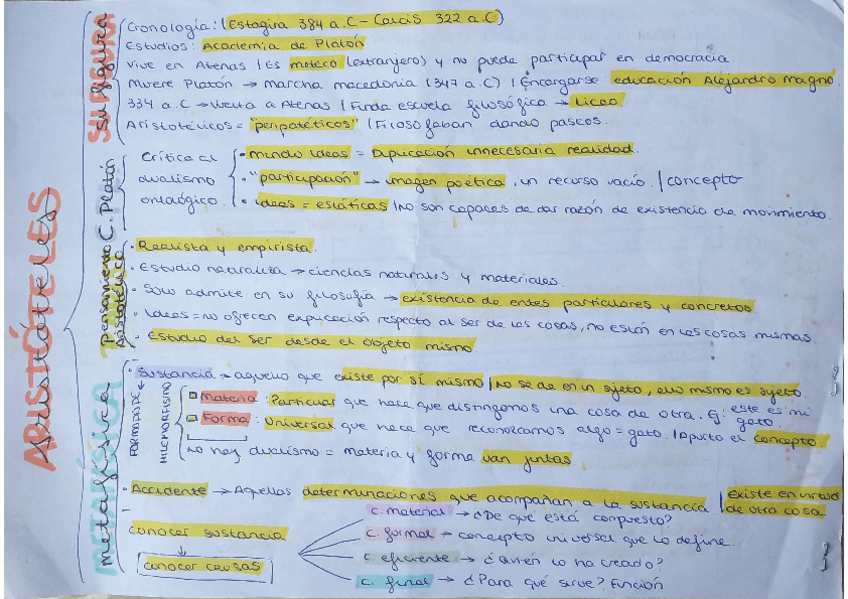 ARISTÓTELES
aristóteles
SU FIGURA
su figura
Cronología: (Estagira 384 a.C - Calcis 322 a.C)
Estudios: Academia de Platón
Vive en Atenas | Es meteco (extranjero) y no puede participar en democracia.
Muere Platón → marcha macedonia (347 a.C) | Encargarse educación Alejandro magno.
334 a.C → Vuelta a Atenas | Funda escuela filosófica → Liceo
Aristotélicos = "peripatéticos" | Filosofaban dando paseos.
C. Platón
Crítica al dualismo ontológico
• mundo ideas = Duplicación innecesaria realidad.
• "participación" → imagen poética, un recurso vacío. | concepto
• ideas = estáticas | No son capaces de dar razón de existencia de movimiento.
Pensamiento Aristotélico
• Realista y empirista.
• Estudio naturaleza → ciencias naturales y materiales.
• Solo admite en su filosofía → existencia de entes particulares y concretos
• Ideas = no ofrecen explicación respecto al ser de las cosas, no están en las cosas mismas.
• Estudio del ser desde el objeto mismo.
METAFÍSICA
metafísica
• Sustancia → aquello que existe por sí mismo | No se da en un sujeto, ello mismo es sujeto
HILEMORFISMO
Materia: Particular que hace que distingamos una cosa de otra. Ej: este es mi gato.
Forma: Universal que hace que reconozcamos algo = gato. | Aporta el concepto.
No hay dualismo = materia y forma van juntas
• Accidente → Aquellas determinaciones que acompañan a la sustancia | Existe en virtud de otra cosa.
conocer sustancia
↓
conocer causas
c. material → ¿De que está compuesto?
c. formal → concepto universal que lo define.
c. eficiente → ¿Quién lo ha creado?
c. final → ¿Para qué sirve? Función